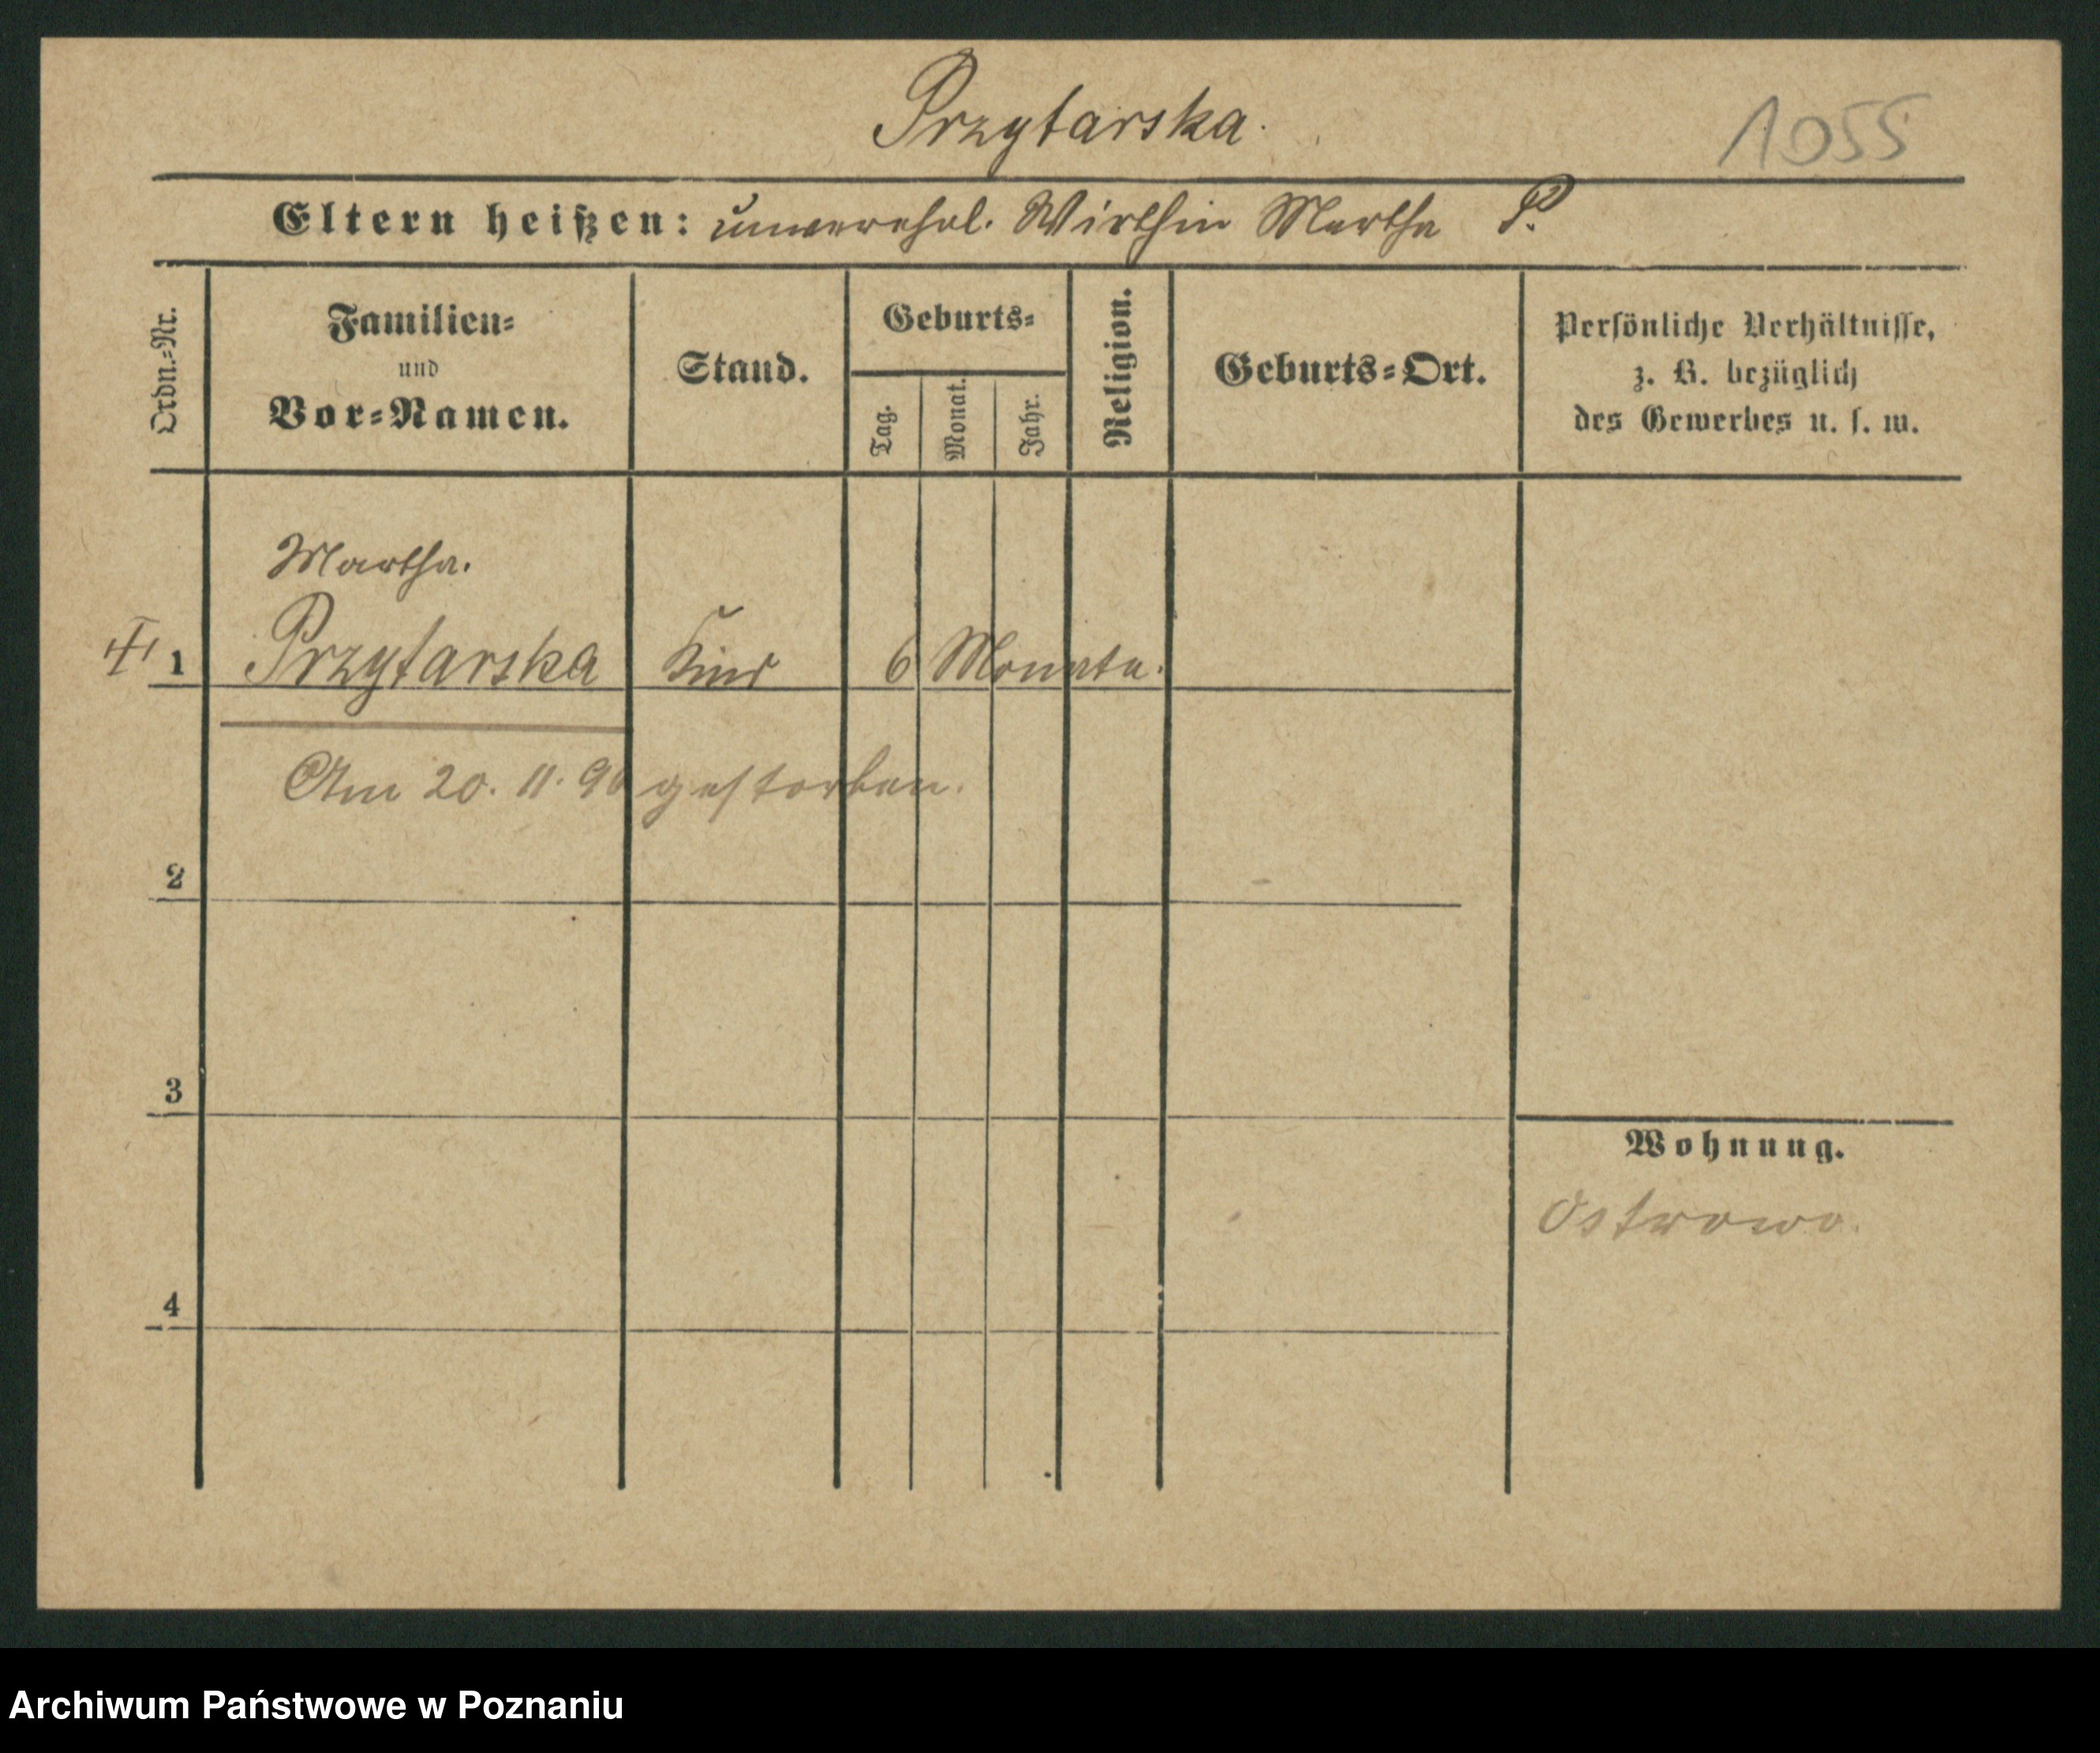 Przytarska.
1055
Eltern heißen: unverehel. Wirthin Martha P.
Ordn.-Nr.
Familien- und Vor-Namen.
Stand.
Geburts-
Tag.
Monat.
Jahr.
Religion.
Geburts-Ort.
Persönliche Verhältnisse,
z. B. bezüglich
des Gewerbes u. s. w.
Martha.
1 Przytarska Kind 6 Monate.
Am 20. 11. 90 gestorben.
2
3
Wohnung.
Ostrowo.
4
Archiwum Państwowe w Poznaniu